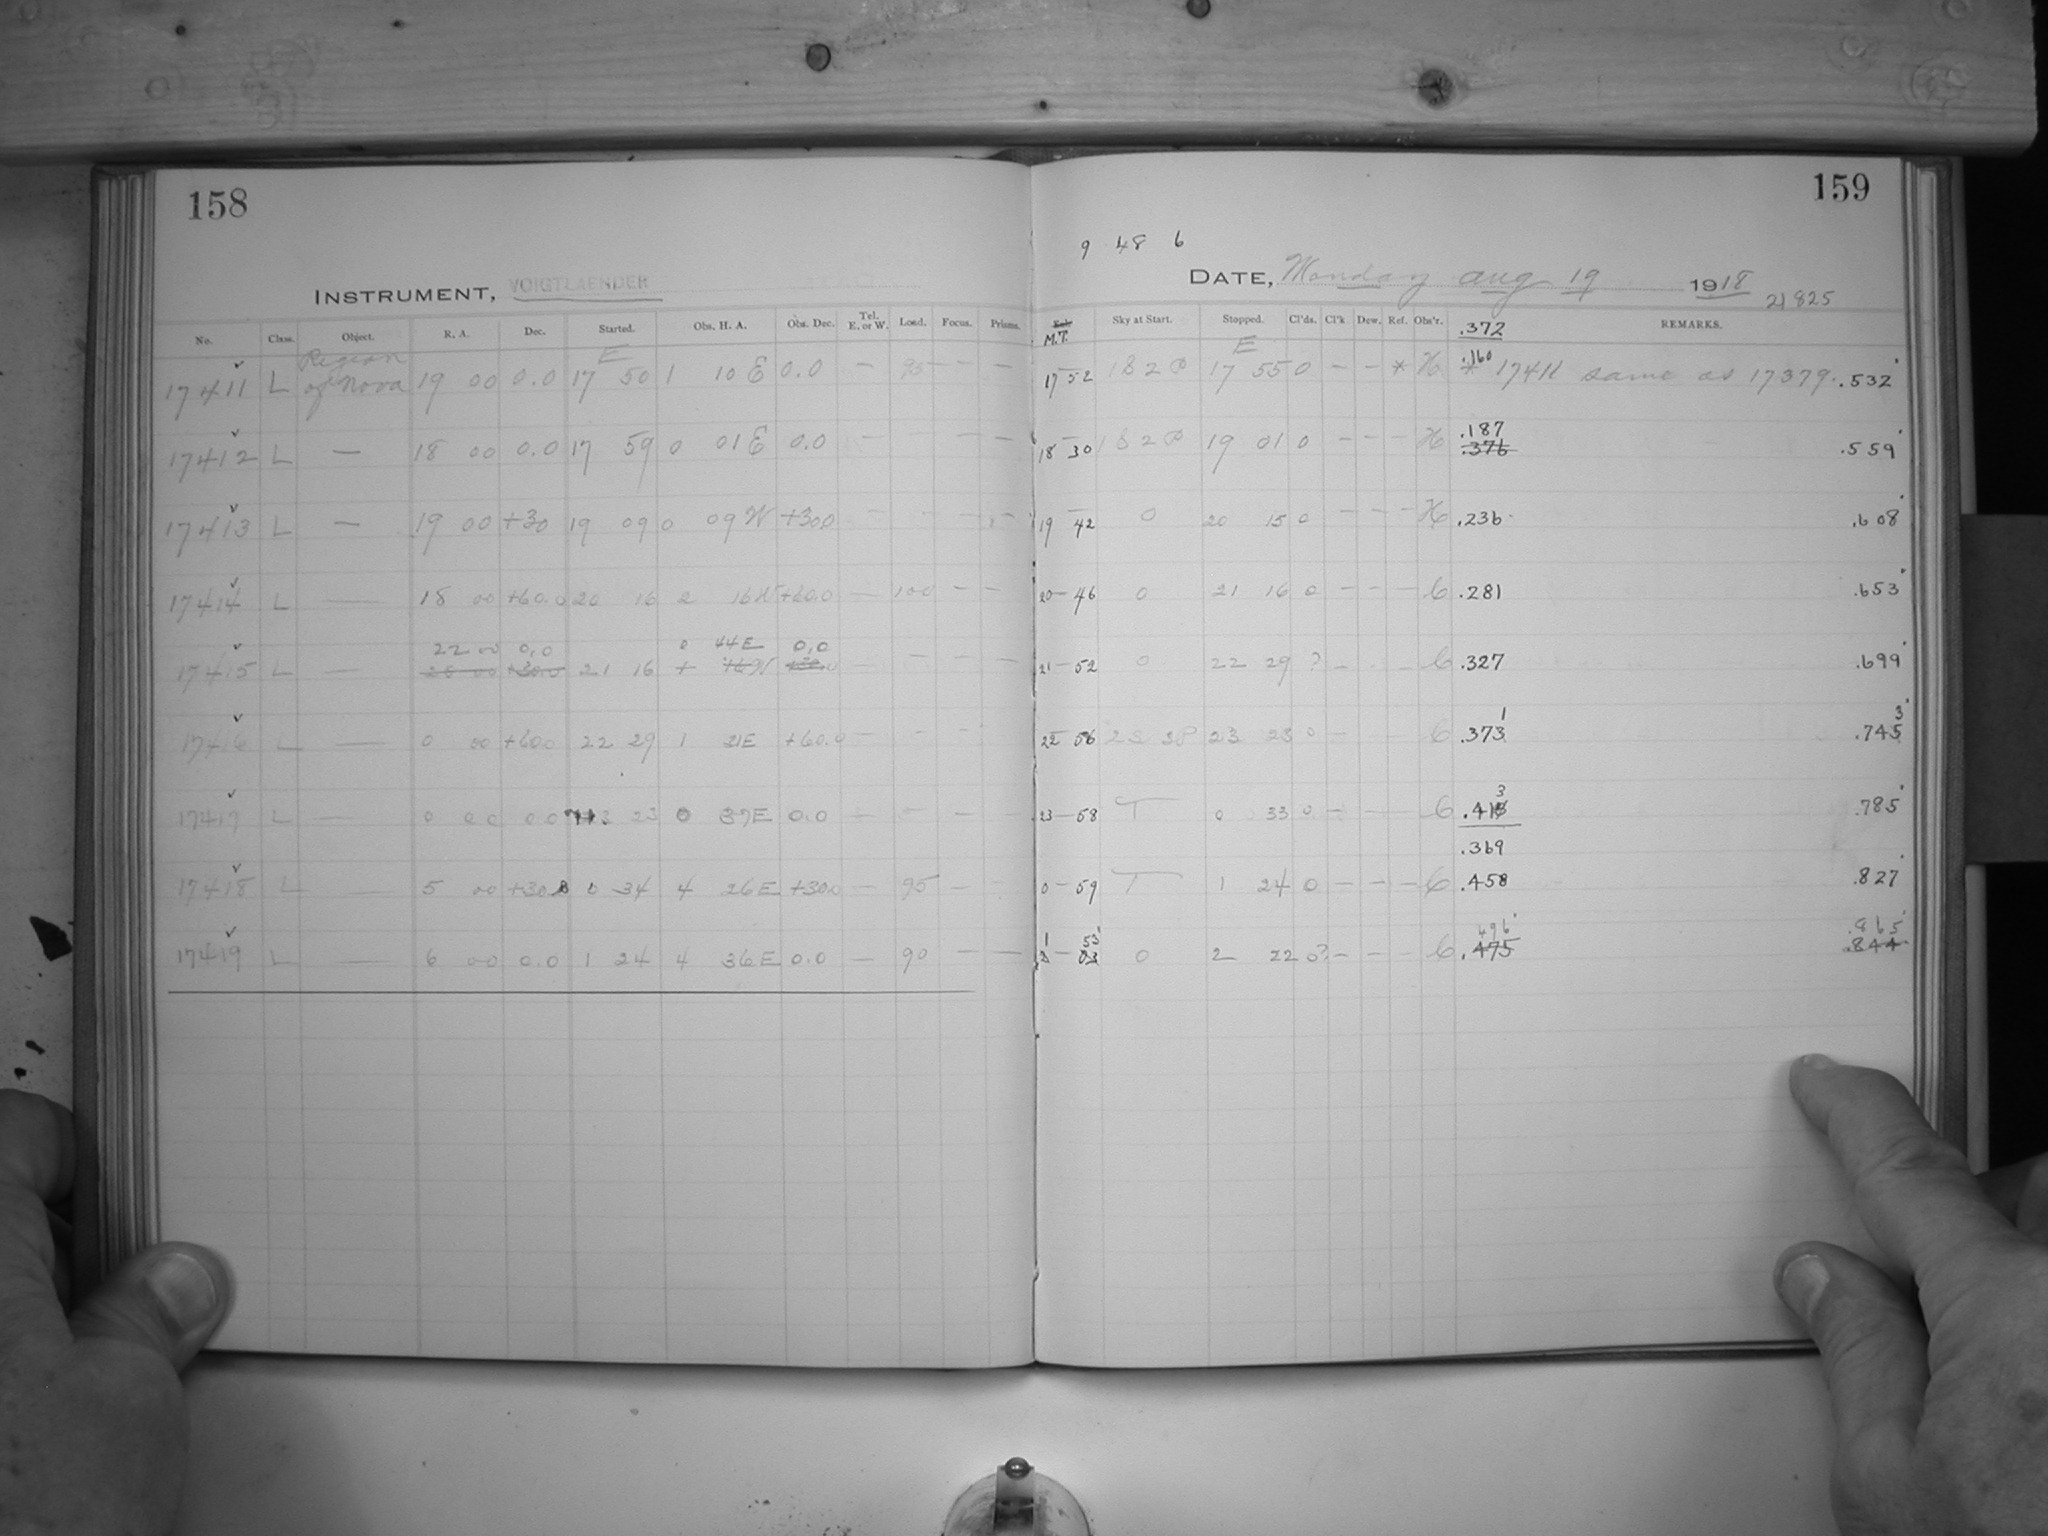 158
159
9 48 6
INSTRUMENT, VOIGTLAENDER
DATE, Monday Aug 19 1918
21825
No. Class. Object. R. A. Dec. Started. Obs. H. A. Obs. Dec. Tel. E. or W. Load. Focus. Prisms. M.T. Sky at Start. Stopped. Cl'ds. Cl'k Dew. Ref. Obs'r. .372 REMARKS.
E E
17411 L Region of Nova 19 00 0.0 17 50 1 10 E 0.0 — 95 — — 17 52 1 S 2 P 17 55 0 — — * H .160 * 17411 same as 17379. .532
17412 L — 18 00 0.0 17 59 0 01 E 0.0 — — — — 18 30 1 S 2 P 19 01 0 — — — H .187 .376 .559
17413 L — 19 00 +30 19 09 0 09 W +30.0 — — — — 19 42 0 20 15 0 — — — H .236 .608
17414 L — 18 00 +60.0 20 16 2 16 W +60.0 — 100 — — 20 — 46 0 21 16 0 — — — C .281 .653
22 00 0.0 0 44 E 0.0
17415 L — +30.0 21 16 — — — — 21 — 52 0 22 29 ? — — C .327 .699
17416 L — 0 00 +60.0 22 29 1 31 E +60.0 — — — — 22 56 2 S 3 P 23 23 0 — C .373 1 .745 3
17417 L — 0 00 0.0 23 23 0 37 E 0.0 — — — — 23 — 58 T 0 33 0 — — C .41 3 .785
.369
17418 L — 5 00 +30.0 0 34 4 26 E +30.0 — 95 — 0 — 59 T 1 24 0 — — — C .458 .827
17419 L — 6 00 0.0 1 24 4 36 E 0.0 — 90 — — 1 53 0 2 22 0? — — — C .496 .475 .865 .844